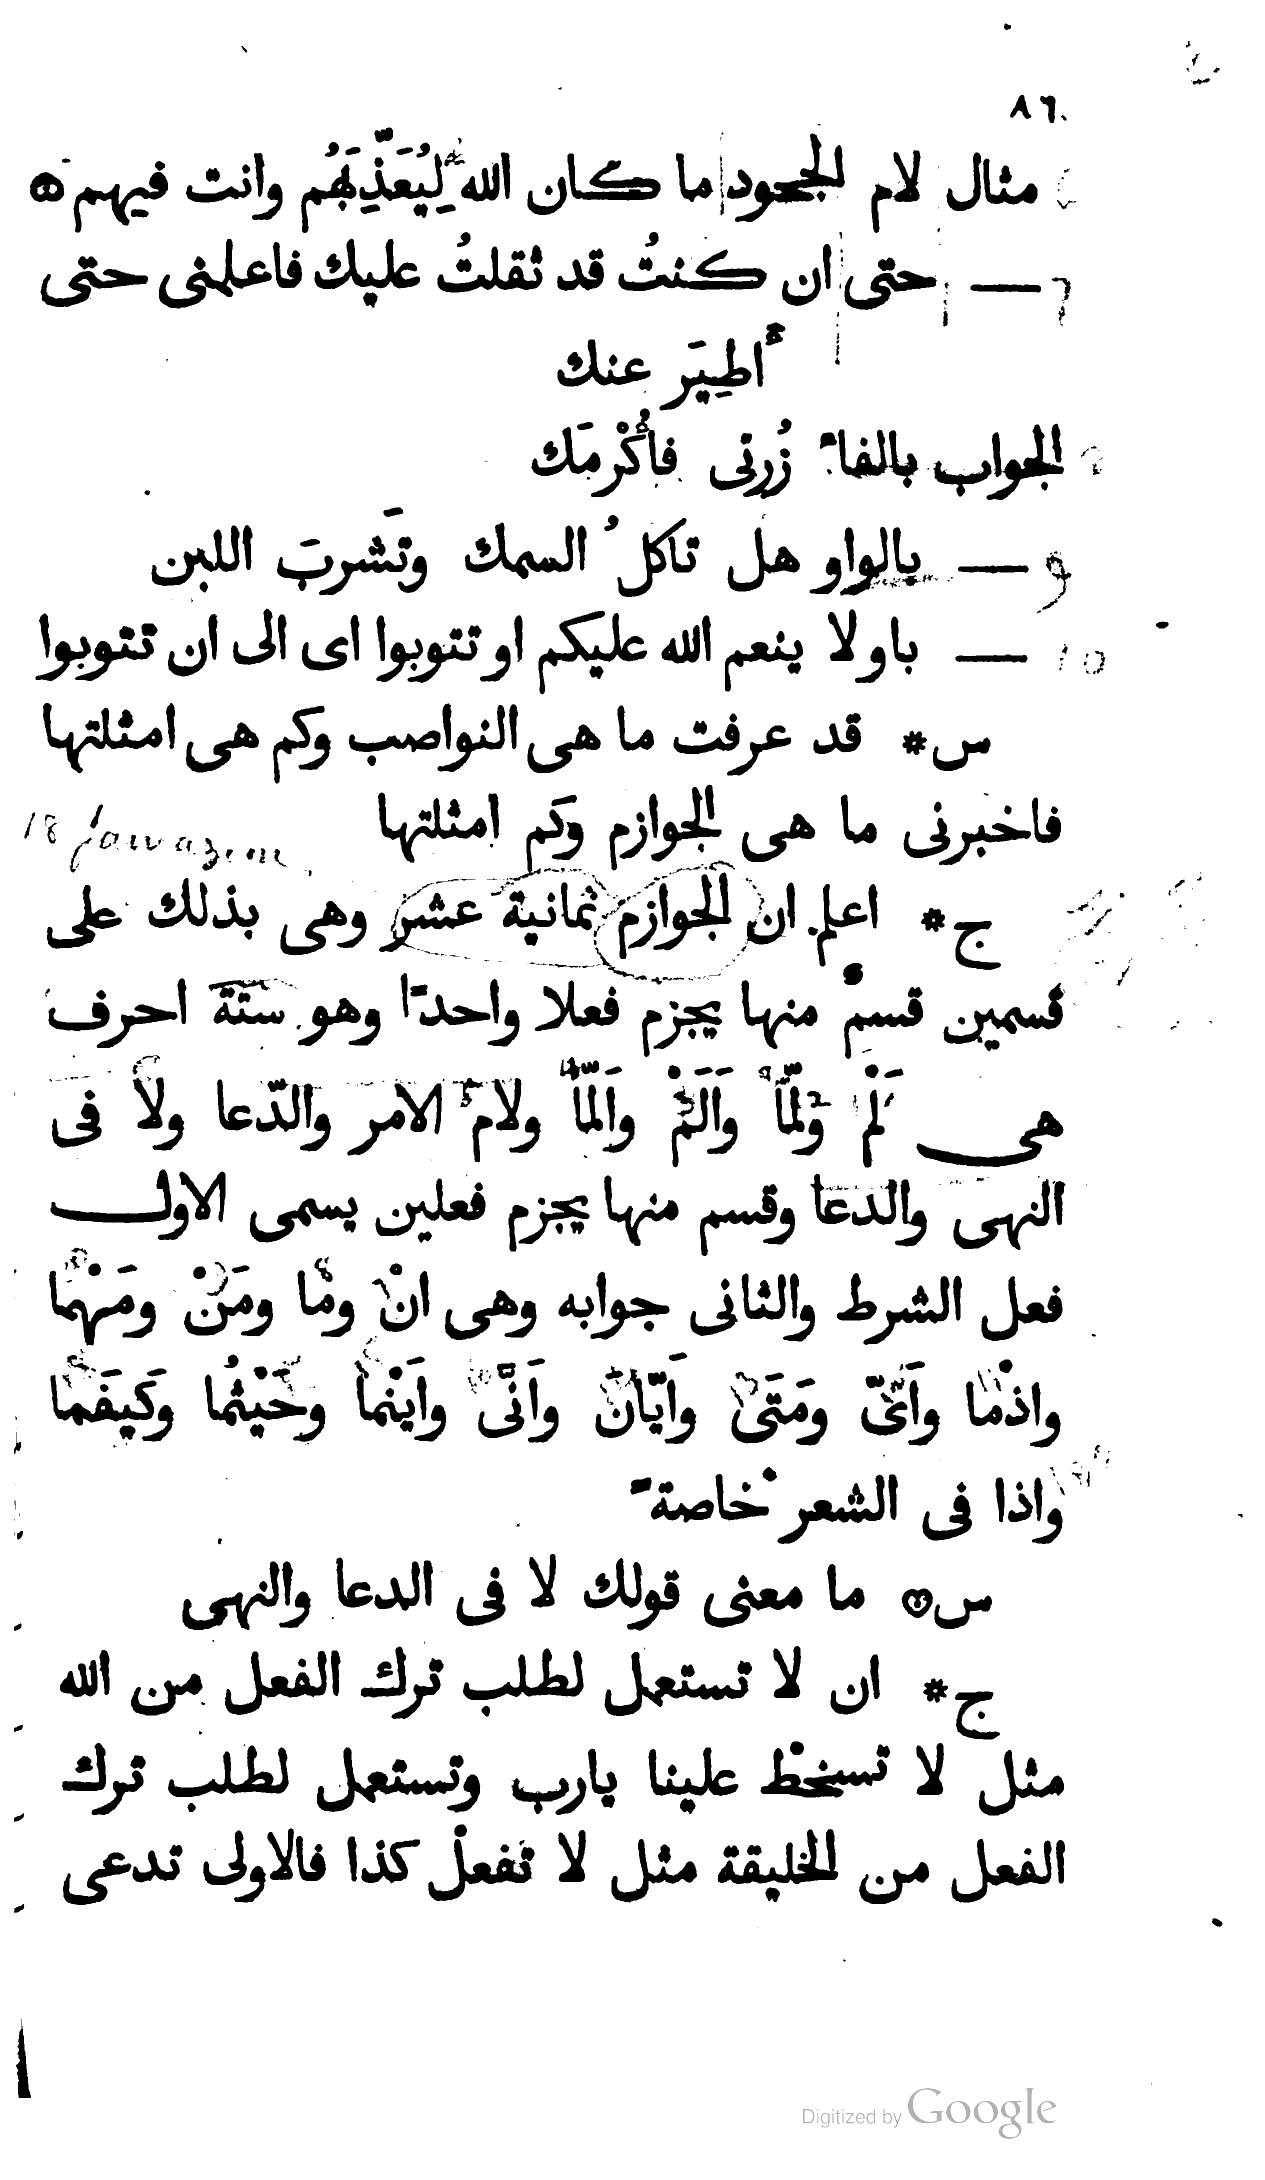 ٨٦
مثال لام الجحود ما كان الله لِيُعَذِّبَهُم وانت فيهم
— حتى ان كنتُ قد ثقلتُ عليك فاعلمنى حتى
اطِيَر عنك
الجواب بالفاء زُرنى فاُكْرمَك
— بالواو هل تاكلُ السمك وتَشربَ اللبن
— باو لا ينعم الله عليكم او تتوبوا اى الى ان تتوبوا
س* قد عرفت ما هى النواصب وكم هى امثلتها
فاخبرنى ما هى الجوازم وكم امثلتها
18 Jawazim
ج* اعلم ان الجوازم ثمانية عشر وهى بذلك على
قسمين قسمٌ منها يجزم فعلا واحدًا وهو ستة احرف
هى لَمْ ولَمَّا واَلَمْ واَلمَّا ولام الامر والدّعا ولا فى
النهى والدعا وقسم منها يجزم فعلين يسمى الاول
فعل الشرط والثانى جوابه وهى انْ وما ومَنْ ومَهْما
واذْما واَىّ ومَتَى واَيّان واَنَّى واَيْنما وحَيْثُما وكَيفَما
واذا فى الشعر خاصةً
س* ما معنى قولك لا فى الدعا والنهى
ج* ان لا تستعمل لطلب ترك الفعل من الله
مثل لا تسخطْ علينا يارب وتستعمل لطلب ترك
الفعل من الخليقة مثل لا تفعلْ كذا فالاولى تدعى
Digitized by Google